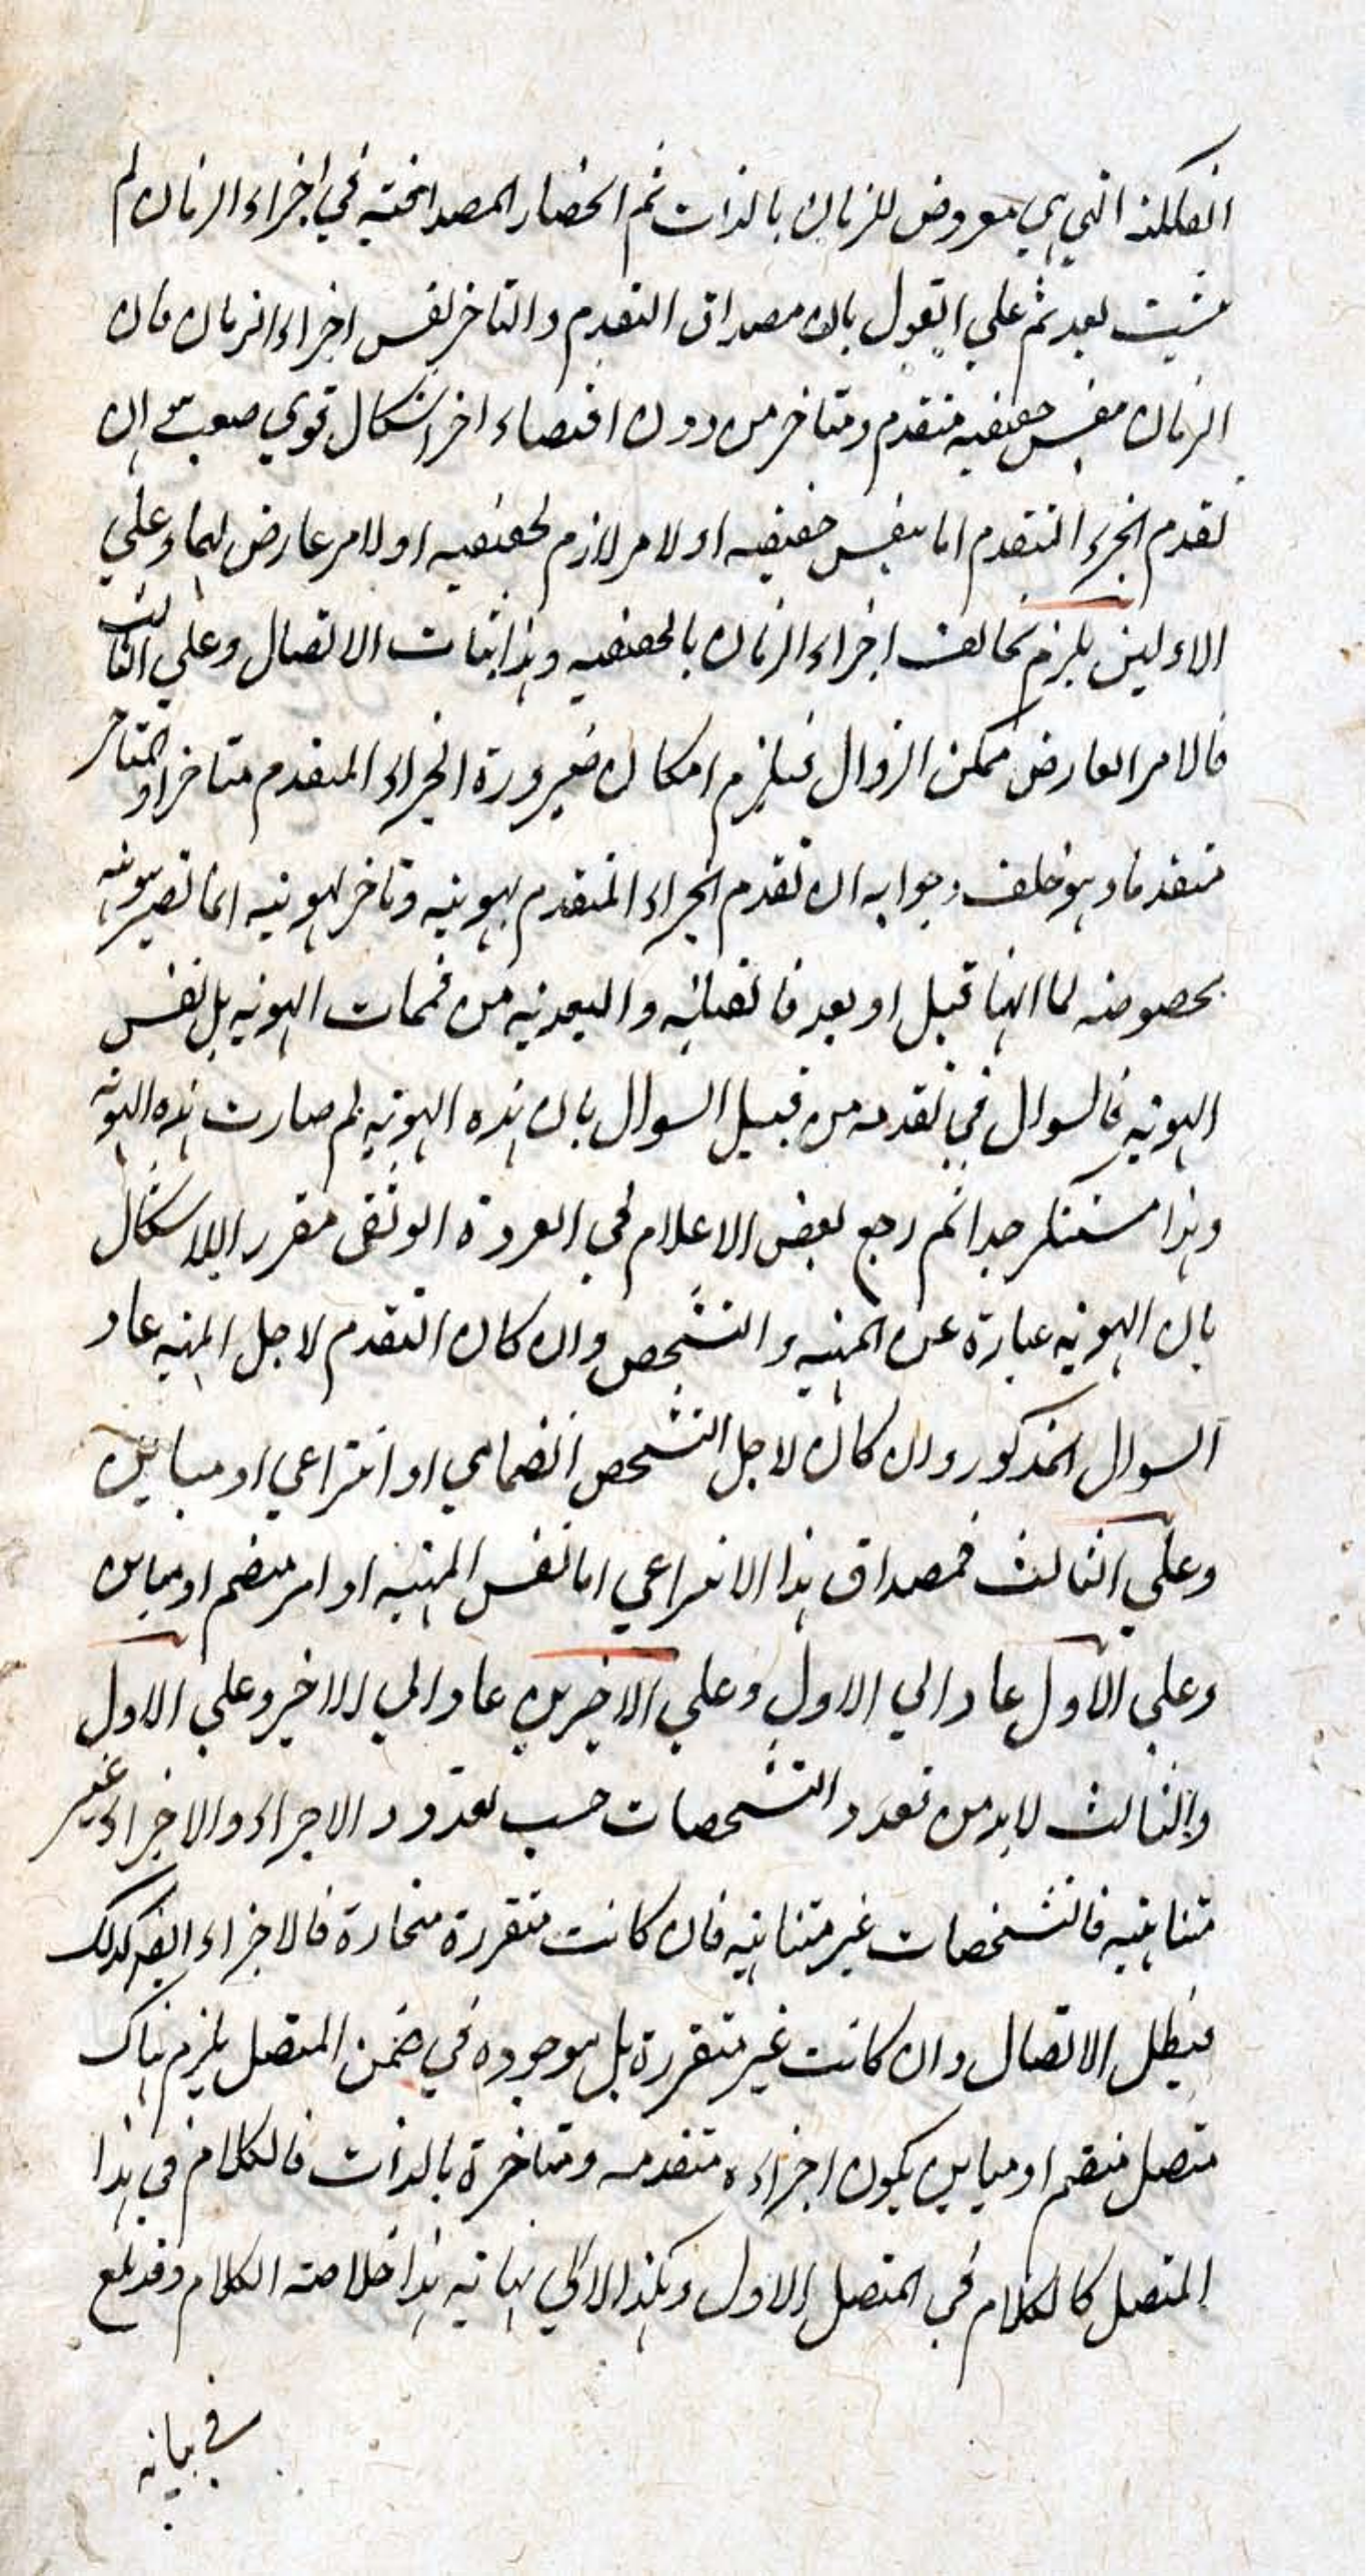 الفلكية التي هي معروض للزمان بالذات ثم انحصار المصداقية في اجزاء الزمان لم
يثبت بعد ثم علي القول بان مصداق التقدم والتاخر نفس اجزاء الزمان فان
الزمان بنفس حقيقته متقدم ومتاخر من دون اقتضاء اخر اشكال قوي صعب هو ان
تقدم الجزء المتقدم اما بنفس حقيقته او لامر لازم لحقيقته او لامر عارض لها وعلي
الاولين يلزم تخالف اجزاء الزمان بالحقيقه وهذا ينافي الاتصال وعلي الثالث
فالامر العارض ممكن الزوال فيلزم امكان ضيرورة الجزاء المتقدم متاخرا والمتاخر
متقدما وهو خلف وجوابه ان تقدم الجزاء المتقدم بهويته وتاخر لهويته انما تصير هويته
بخصوصه لما انها قبل او بعد فالقبليه والبعديه من متممات الهويه بل نفس
الهويه فالسوال في تقدمه من قبيل السوال بان هذه الهويه لم صارت هذه الهويه
وهذا مستنكر جدا ثم رجع بعض الاعلام في العروة الوثقي مقررا للاشكال
بان الهويه عبارة عن المهيه والتشخص وان كان التقدم لاجل المهيه عاد
السوال المذكور وان كان لاجل التشخص انضمامي او انتزاعي او مباين
وعلي الثالث فمصداق هذا الانتزاعي اما نفس المهيه او امر منضم او مباين
وعلي الاول عاد الي الاول وعلي الاخيرين عاد الي الاخير وعلي الاول
والثالث لابد من تعدد التشخصات حسب تعدد الاجزاء والاجزاء غير
متناهيه فالتشخصات غير متناهيه فان كانت متقررة منحازة فالاجزاء ايضا كذلك
فيبطل الاتصال وان كانت غير متقررة بل موجوده في ضمن المتصل يلزم هناك
متصل منضم او مباين يكون اجزاءه متقدمه ومتاخرة بالذات فالكلام في هذا
المتصل كالكلام في المتصل الاول وهكذا الي لا نهايه هذا خلاصه الكلام وقد بلغ
في بيانه